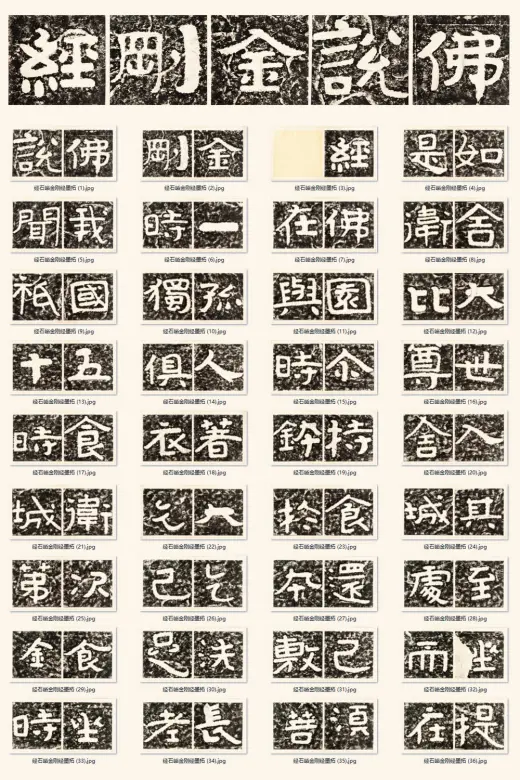 佛說金剛經
佛說 金剛 經 如是
经石峪金刚经墨拓 (1).jpg 经石峪金刚经墨拓 (2).jpg 经石峪金刚经墨拓 (3).jpg 经石峪金刚经墨拓 (4).jpg
我聞 一時 佛在 舍衛
经石峪金刚经墨拓 (5).jpg 经石峪金刚经墨拓 (6).jpg 经石峪金刚经墨拓 (7).jpg 经石峪金刚经墨拓 (8).jpg
國祇 孤獨 園與 大比
经石峪金刚经墨拓 (9).jpg 经石峪金刚经墨拓 (10).jpg 经石峪金刚经墨拓 (11).jpg 经石峪金刚经墨拓 (12).jpg
五十 人俱 尒時 世尊
经石峪金刚经墨拓 (13).jpg 经石峪金刚经墨拓 (14).jpg 经石峪金刚经墨拓 (15).jpg 经石峪金刚经墨拓 (16).jpg
食時 著衣 持鉢 入舍
经石峪金刚经墨拓 (17).jpg 经石峪金刚经墨拓 (18).jpg 经石峪金刚经墨拓 (19).jpg 经石峪金刚经墨拓 (20).jpg
衛城 大乞 食扵 其城
经石峪金刚经墨拓 (21).jpg 经石峪金刚经墨拓 (22).jpg 经石峪金刚经墨拓 (23).jpg 经石峪金刚经墨拓 (24).jpg
次第 乞已 還夲 至處
经石峪金刚经墨拓 (25).jpg 经石峪金刚经墨拓 (26).jpg 经石峪金刚经墨拓 (27).jpg 经石峪金刚经墨拓 (28).jpg
食金 洗足 已敷 坐而
经石峪金刚经墨拓 (29).jpg 经石峪金刚经墨拓 (30).jpg 经石峪金刚经墨拓 (31).jpg 经石峪金刚经墨拓 (32).jpg
坐時 長老 須菩 提在
经石峪金刚经墨拓 (33).jpg 经石峪金刚经墨拓 (34).jpg 经石峪金刚经墨拓 (35).jpg 经石峪金刚经墨拓 (36).jpg